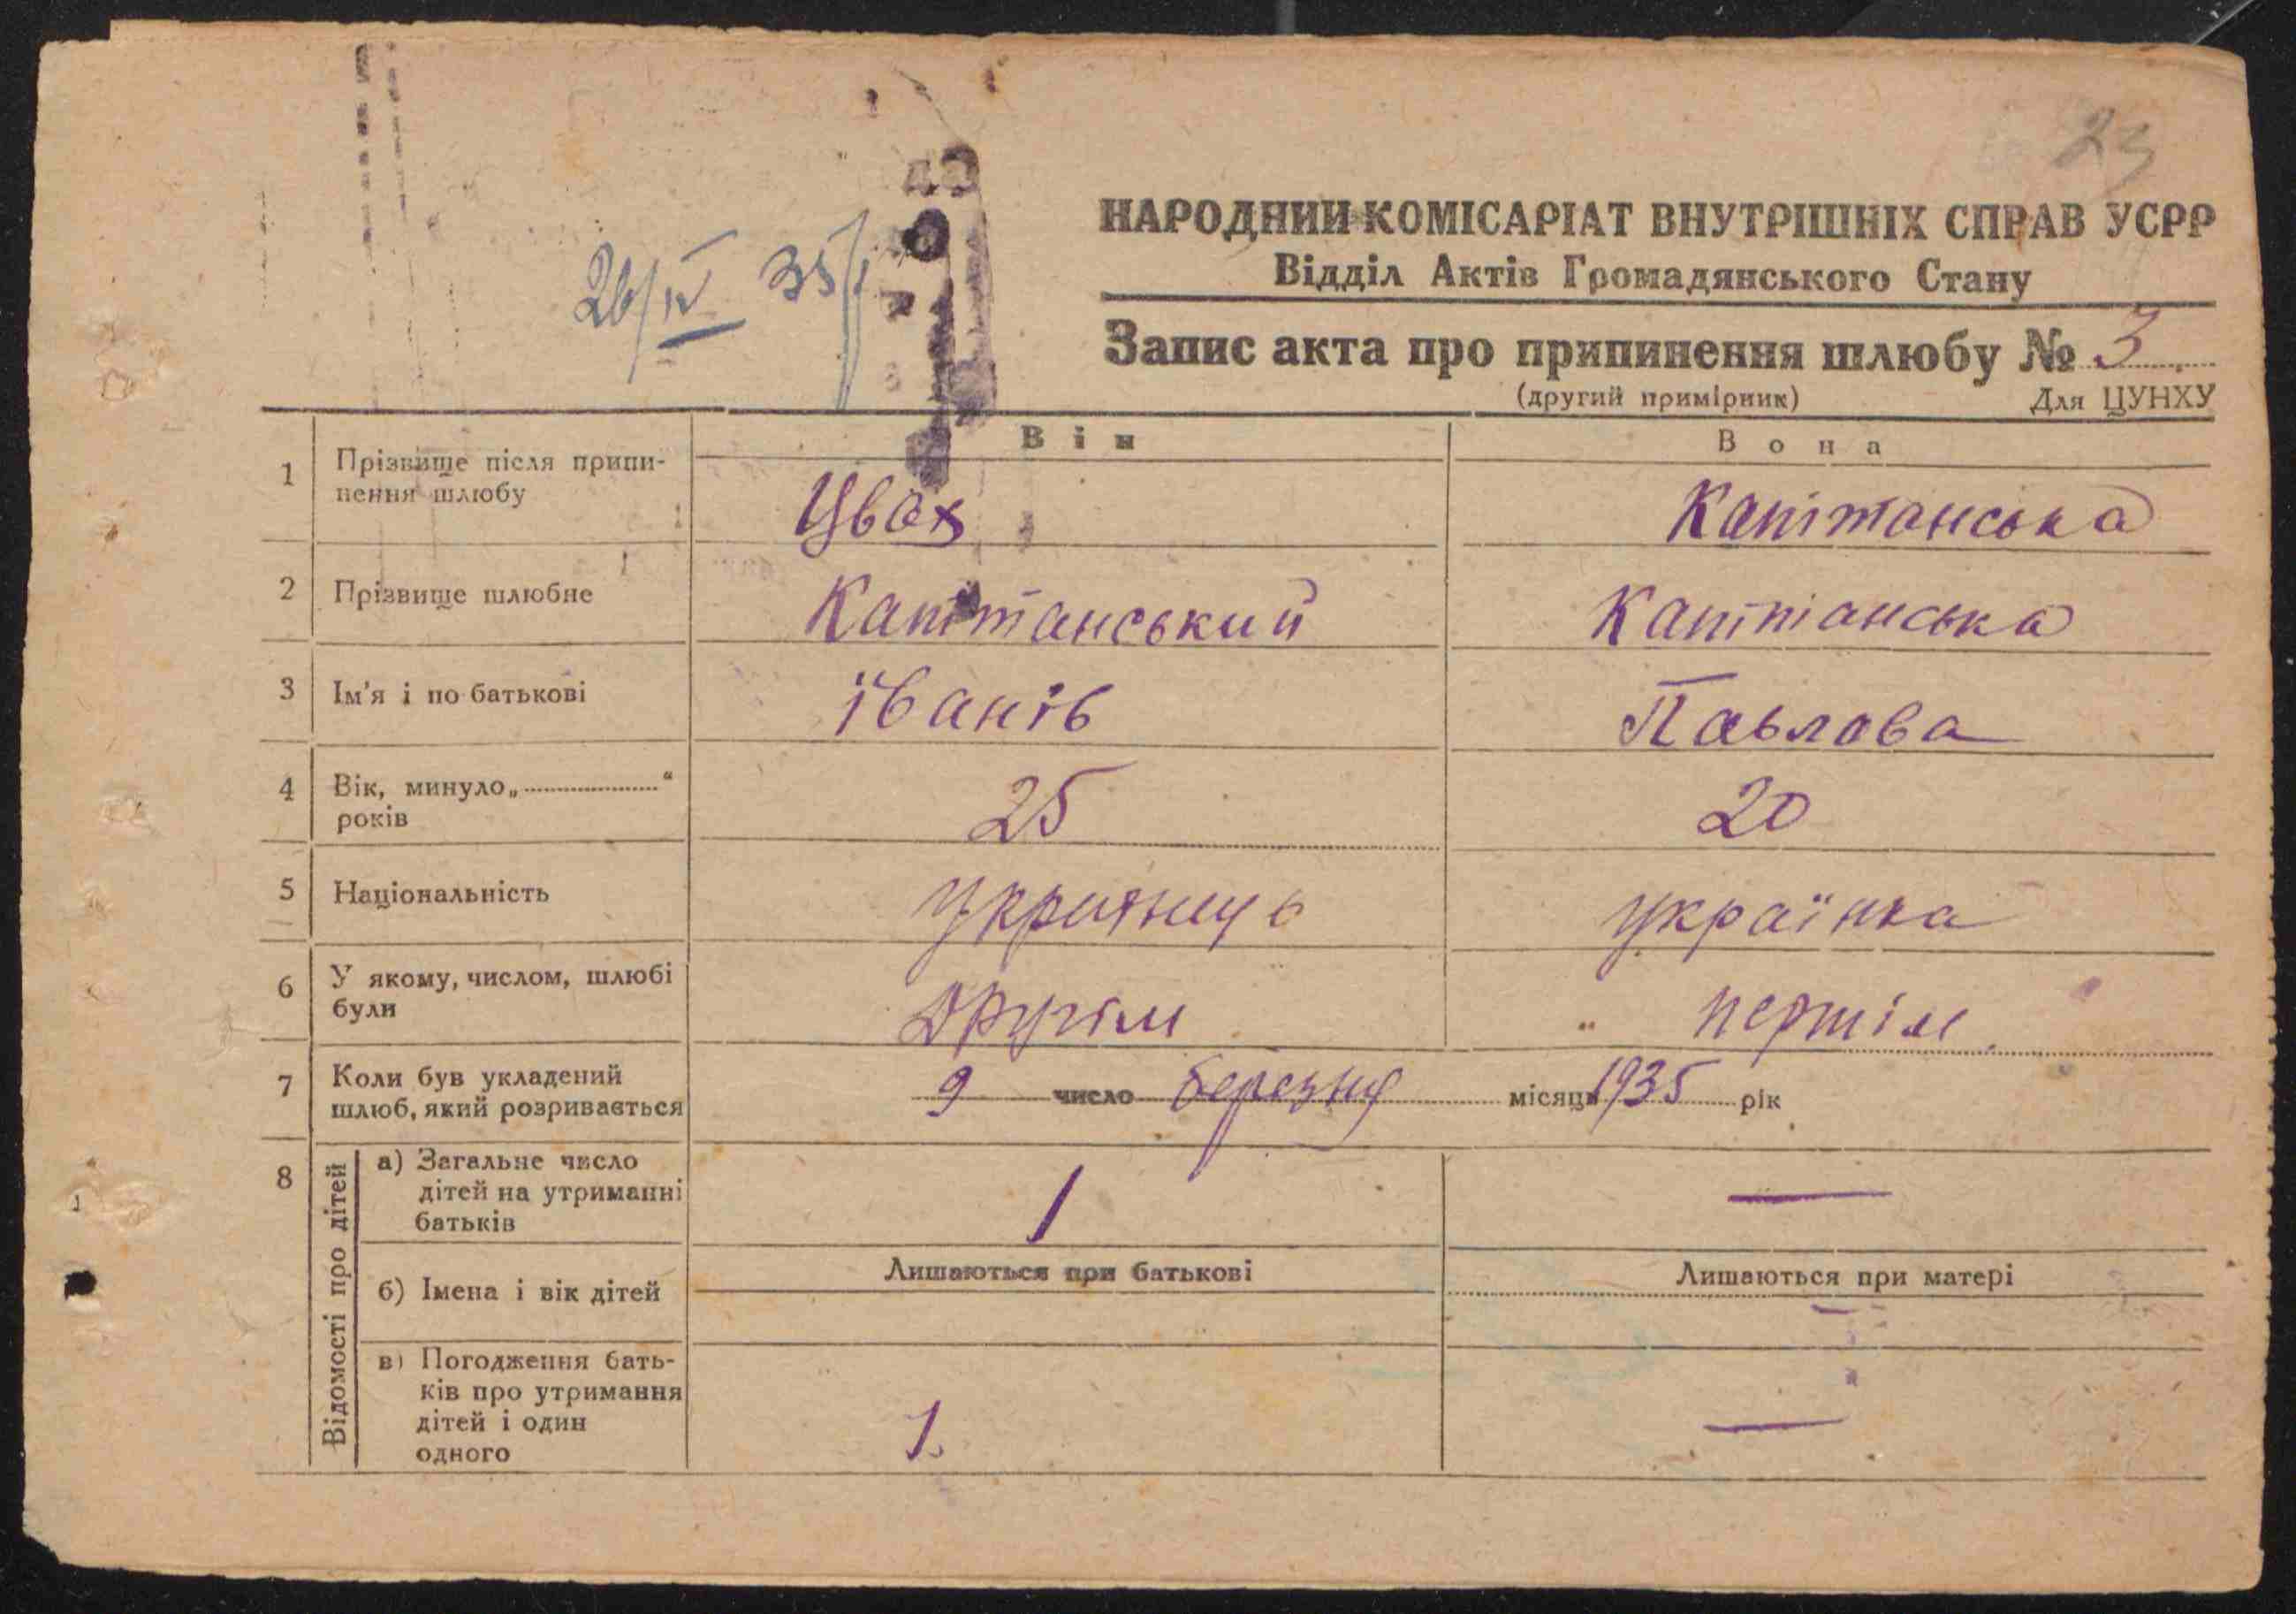 23
НАРОДНИЙ КОМІСАРІАТ ВНУТРІШНІХ СПРАВ УСРР
Відділ Актів Громадянського Стану
26/IV 35
Запис акта про припинення шлюбу № 3
(другий примірник) Для ЦУНХУ
Він Вона
1 Прізвище після припи-
нення шлюбу Цвях Капітанська
2 Прізвище шлюбне Капітанський Капітанська
3 Ім'я і по батькові Іванів Павлова
4 Вік, минуло „ “
років 25 20
5 Національність українць українка
6 У якому, числом, шлюбі
були Другім першім
7 Коли був укладений
шлюб, який розривається 9 число березня місяць 1935 рік
8 Відомості про дітей
а) Загальне число
дітей на утриманні
батьків 1 —
Лишаються при батькові Лишаються при матері
б) Імена і вік дітей
в) Погодження бать-
ків про утримання
дітей і один
одного 1. —